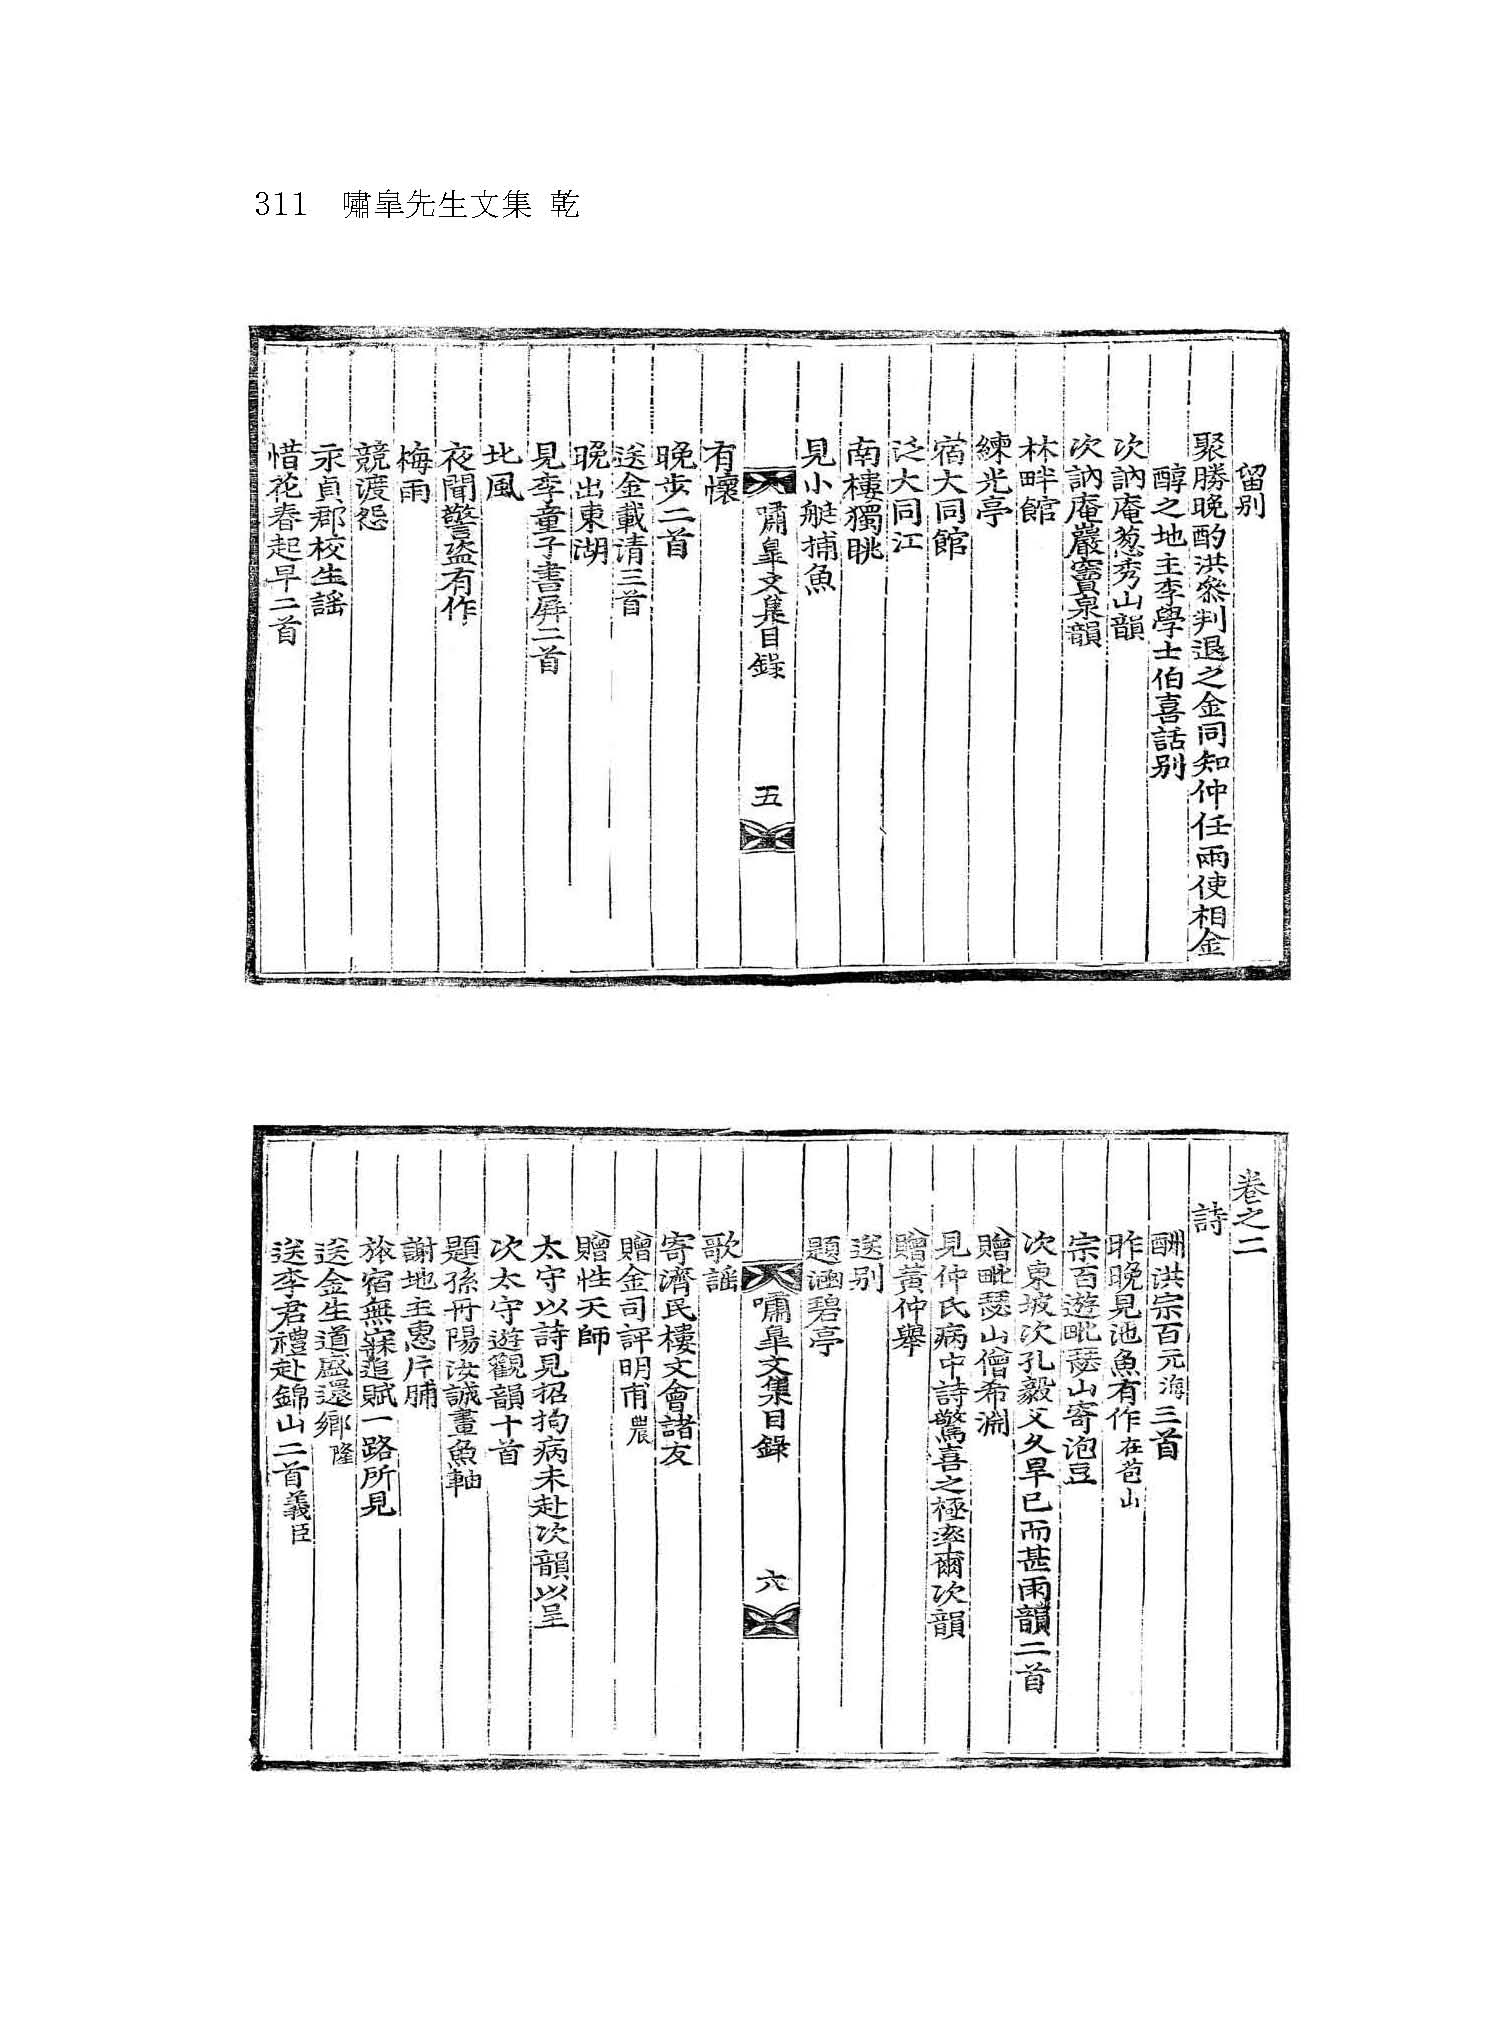 311 嘯皐先生文集 乾
留别
聚勝晚酌洪叅判退之金同知仲任兩使相金
醇之地主李學士伯喜話别
次訥庵葱秀山韻
次訥庵巖竇泉韻
林畔館
練光亭
宿大同館
泛大同江
南樓獨眺
見小艇捕魚
嘯皐文集目錄 五
有懷
晚步二首
送金載清三首
晚出東湖
見李童子書屛二首
北風
夜聞警盜有作
梅雨
競渡怨
永貞郡校生謠
惜花春起早二首
卷之二
詩
酬洪宗百元海三首
昨晚見池魚有作在苞山
宗百遊毗瑟山寄泡豆
次東坡次孔毅父久旱已而甚雨韻二首
贈毗瑟山僧希淵
見仲氏病中詩驚喜之極率爾次韻
贈黃仲擧
送别
題涵碧亭
嘯皐文集目錄 六
歌謠
寄濟民樓文會諸友
贈金司評明甫農
贈性天師
太守以詩見招拘病未赴次韻以呈
次太守遊觀韻十首
題孫丹陽汝誠畫魚軸
謝地主惠片脯
旅宿無寐追賦一路所見
送金生道盛還鄉隆
送李君禮赴錦山二首義臣